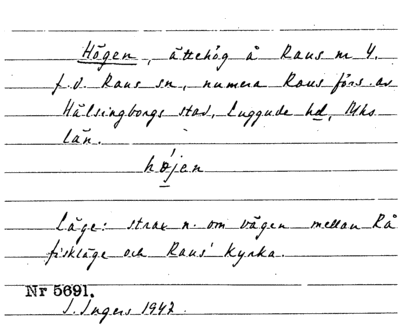 Högen, ättehög å Raus nr 4.
f.d. Raus sn, numera Raus förs. av
Hälsingborgs stad, Luggude hd, Mhs
län.
højen
Läge: strax n. om vägen mellan Rå
fiskläge och Raus' kyrka.
Nr 5691.
I. Ingers 1947.